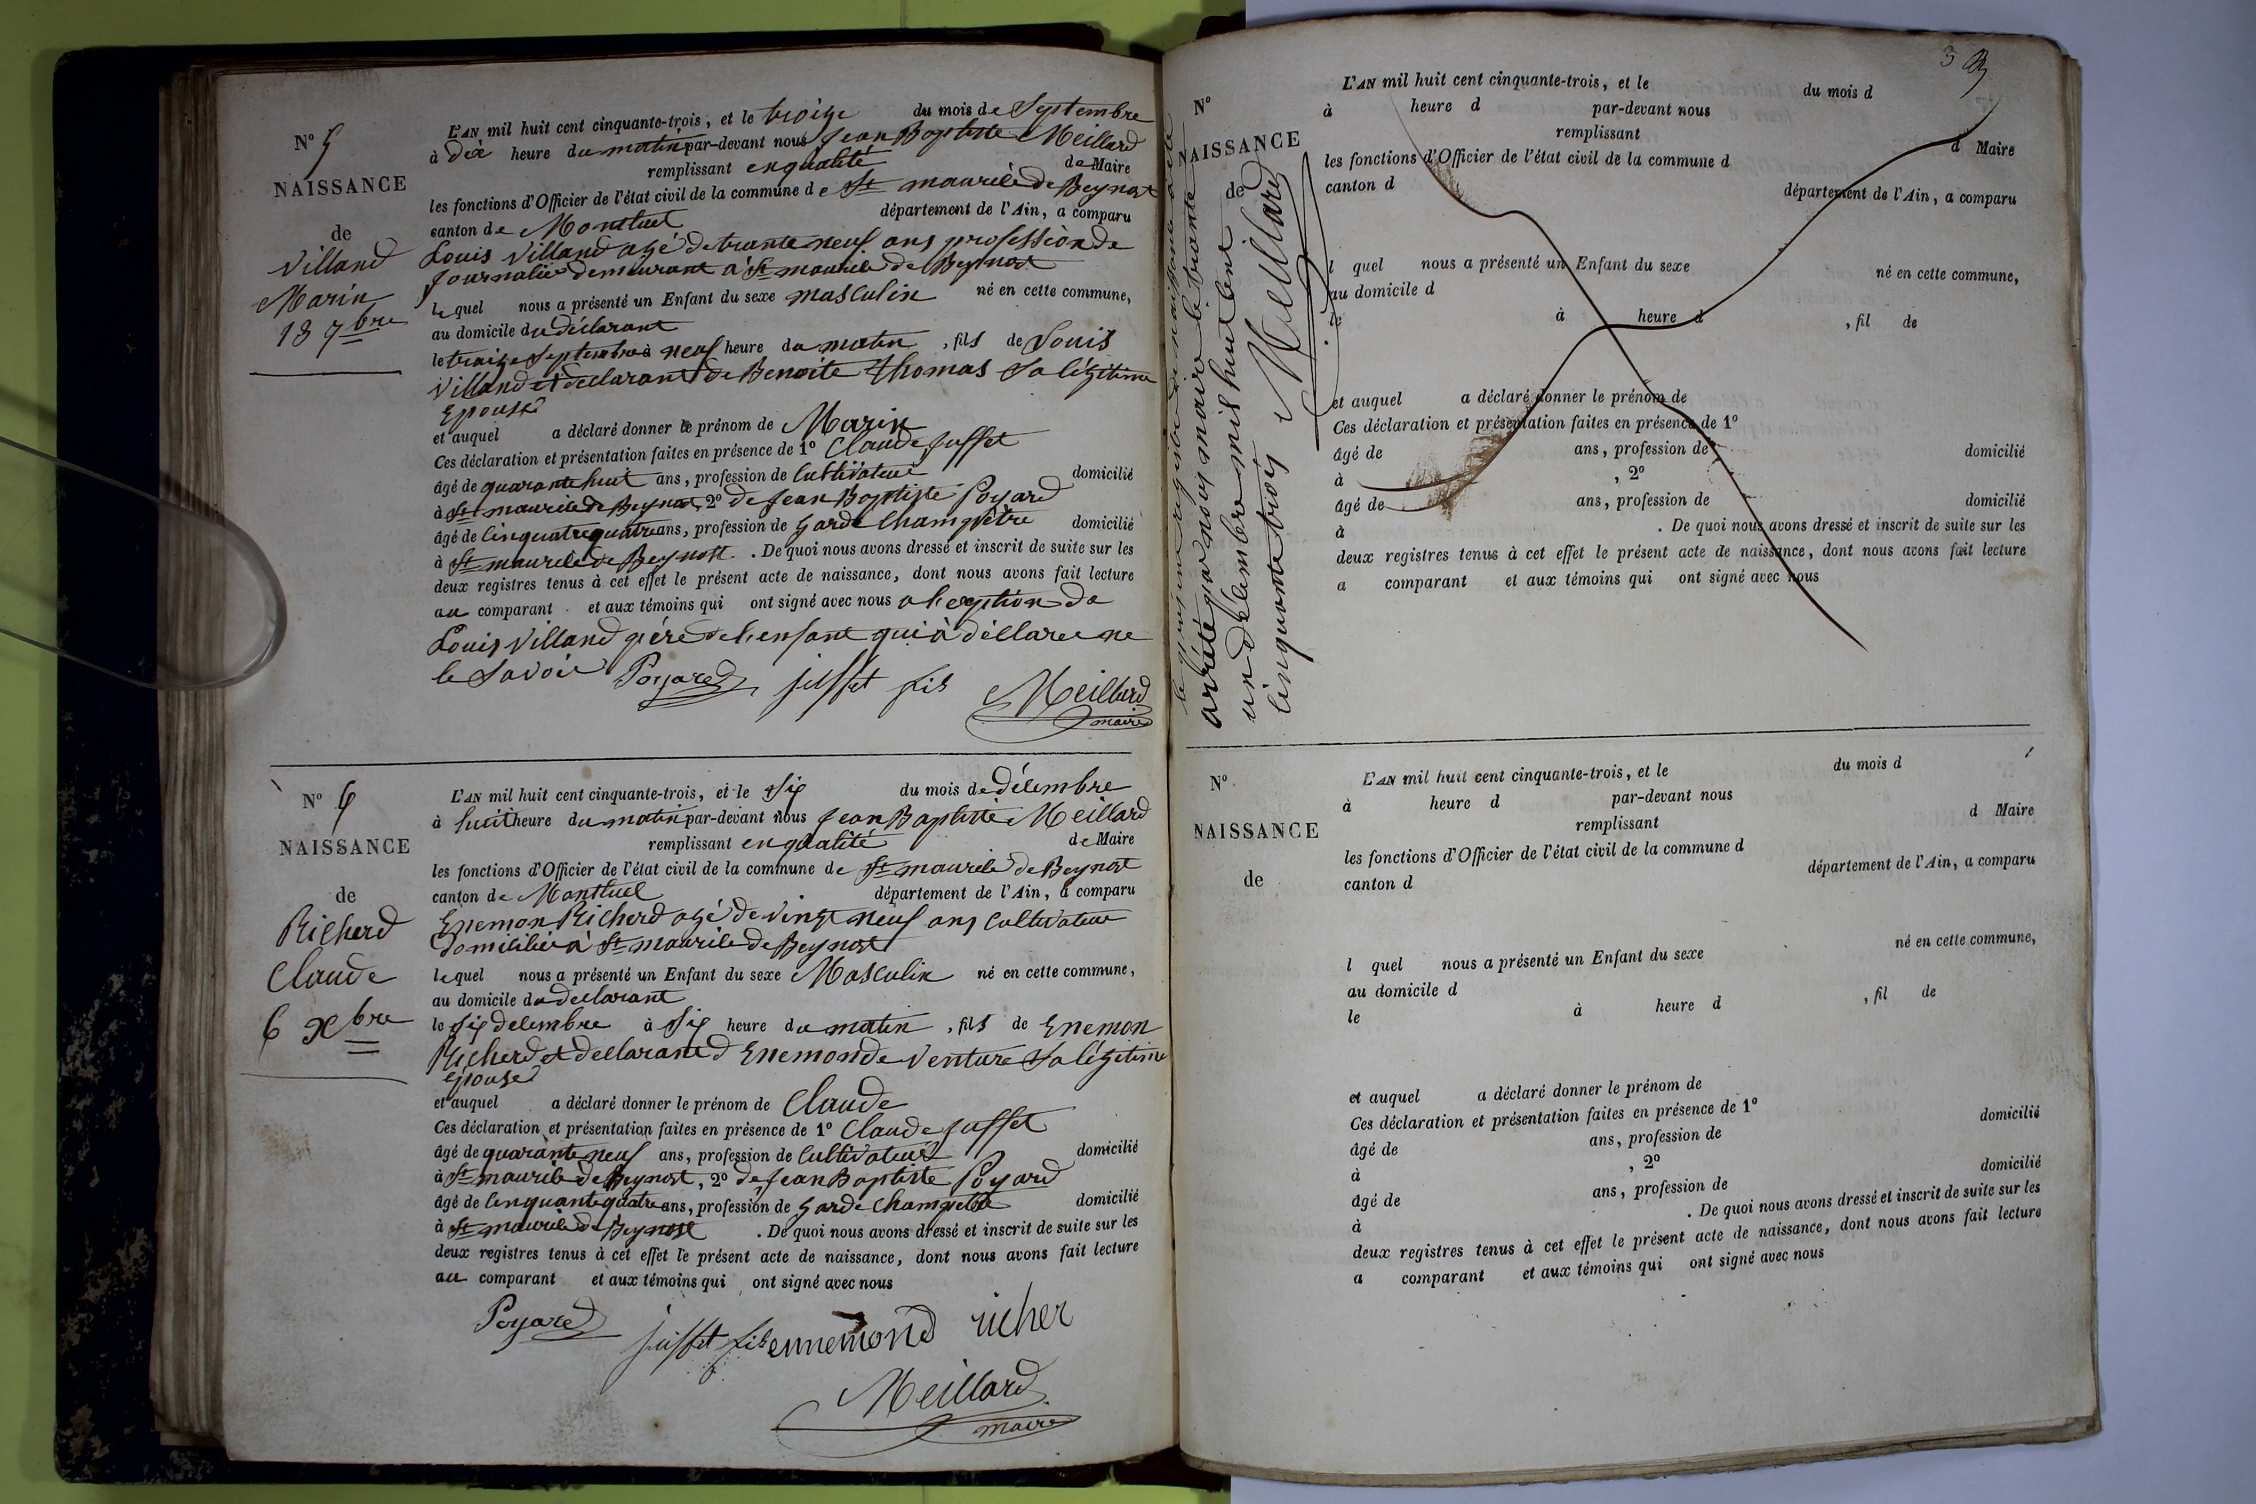 N° 5
NAISSANCE
de
Villand
Marin
13 7bre
L'AN mil huit cent cinquante-trois, et le treize du mois de Septembre
à dix heure du matin par-devant nous Jean Baptiste Meillard
remplissant en qualité de Maire
les fonctions d'Officier de l'état civil de la commune de St maurice de Beynost
canton de Montluel département de l'Ain, a comparu
Louis Villand agé de trante neuf ans profession de
Journalier demeurant à St maurice de Beynost
lequel nous a présenté un Enfant du sexe masculin né en cette commune,
au domicile du déclarant
le treize Septembre à neuf heure du matin, fils de Louis
Villand et declarant de Benoite Thomas Sa légitime
Epouse
et auquel a déclaré donner le prénom de Marin
Ces déclaration et présentation faites en présence de 1° Claude Juffet
âgé de quarante huit ans, profession de Cultivateur domicilié
à St maurice de Beynost, 2° de Jean Baptiste Poyard
âgé de cinquatre quatre ans, profession de Garde Champêtre domicilié
à St maurice de Beynost. De quoi nous avons dressé et inscrit de suite sur les
deux registres tenus à cet effet le présent acte de naissance, dont nous avons fait lecture
au comparant et aux témoins qui ont signé avec nous a l'eception de
Louis Villand père de l'enfant qui à déllarer ne
le Savoir Poyard juffet fils Meillard
maire
N° 6
NAISSANCE
de
Richerd
Claude
6 Xbre
L'AN mil huit cent cinquante-trois, et le Six du mois de décembre
à huit heure du matin par-devant nous Jean Baptiste Meillard
remplissant en qualité de Maire
les fonctions d'Officier de l'état civil de la commune de St maurice de Beynost
canton de Montluel département de l'Ain, a comparu
Enemon Richerd agé de vingt neuf ans Cultivateur
Domicilié à St maurice de Beynost
lequel nous a présenté un Enfant du sexe Masculin né en cette commune,
au domicile du declarant
le Six decembre à Six heure du matin, fils de Enemon
Richerd et declarant d Enemonde Venture Sa légitime
Epouse
et auquel a déclaré donner le prénom de Claude
Ces déclaration et présentation faites en présence de 1° Claude Juffet
âgé de quarante neuf ans, profession de Cultivateur domicilié
à St maurice de Beynost, 2° de Jean Baptiste Poyard
âgé de cinquante quatre ans, profession de Garde Champetre domicilié
à St maurice de Beynost. De quoi nous avons dressé et inscrit de suite sur les
deux registres tenus à cet effet le présent acte de naissance, dont nous avons fait lecture
au comparant et aux témoins qui ont signé avec nous
Poyard juffet fils ennemond richer
Meillard
maire
le présent registre de naissance a été
arrêté par nous maire le trante
un décembre mil huit cent
cinquante trois Meillard
N°
NAISSANCE
de
L'AN mil huit cent cinquante-trois, et le du mois d
à heure d par-devant nous
remplissant d Maire
les fonctions d'Officier de l'état civil de la commune d
canton d département de l'Ain, a comparu
l quel nous a présenté un Enfant du sexe né en cette commune,
au domicile d
le à heure d , fil de
et auquel a déclaré donner le prénom de
Ces déclaration et présentation faites en présence de 1°
âgé de ans, profession de domicilié
à , 2°
âgé de ans, profession de domicilié
à . De quoi nous avons dressé et inscrit de suite sur les
deux registres tenus à cet effet le présent acte de naissance, dont nous avons fait lecture
a comparant et aux témoins qui ont signé avec nous
N°
NAISSANCE
de
L'AN mil huit cent cinquante-trois, et le du mois d
à heure d par-devant nous
remplissant d Maire
les fonctions d'Officier de l'état civil de la commune d
canton d département de l'Ain, a comparu
l quel nous a présenté un Enfant du sexe né en cette commune,
au domicile d
le à heure d , fil de
et auquel a déclaré donner le prénom de
Ces déclaration et présentation faites en présence de 1°
âgé de ans, profession de domicilié
à , 2°
âgé de ans, profession de domicilié
à . De quoi nous avons dressé et inscrit de suite sur les
deux registres tenus à cet effet le présent acte de naissance, dont nous avons fait lecture
a comparant et aux témoins qui ont signé avec nous